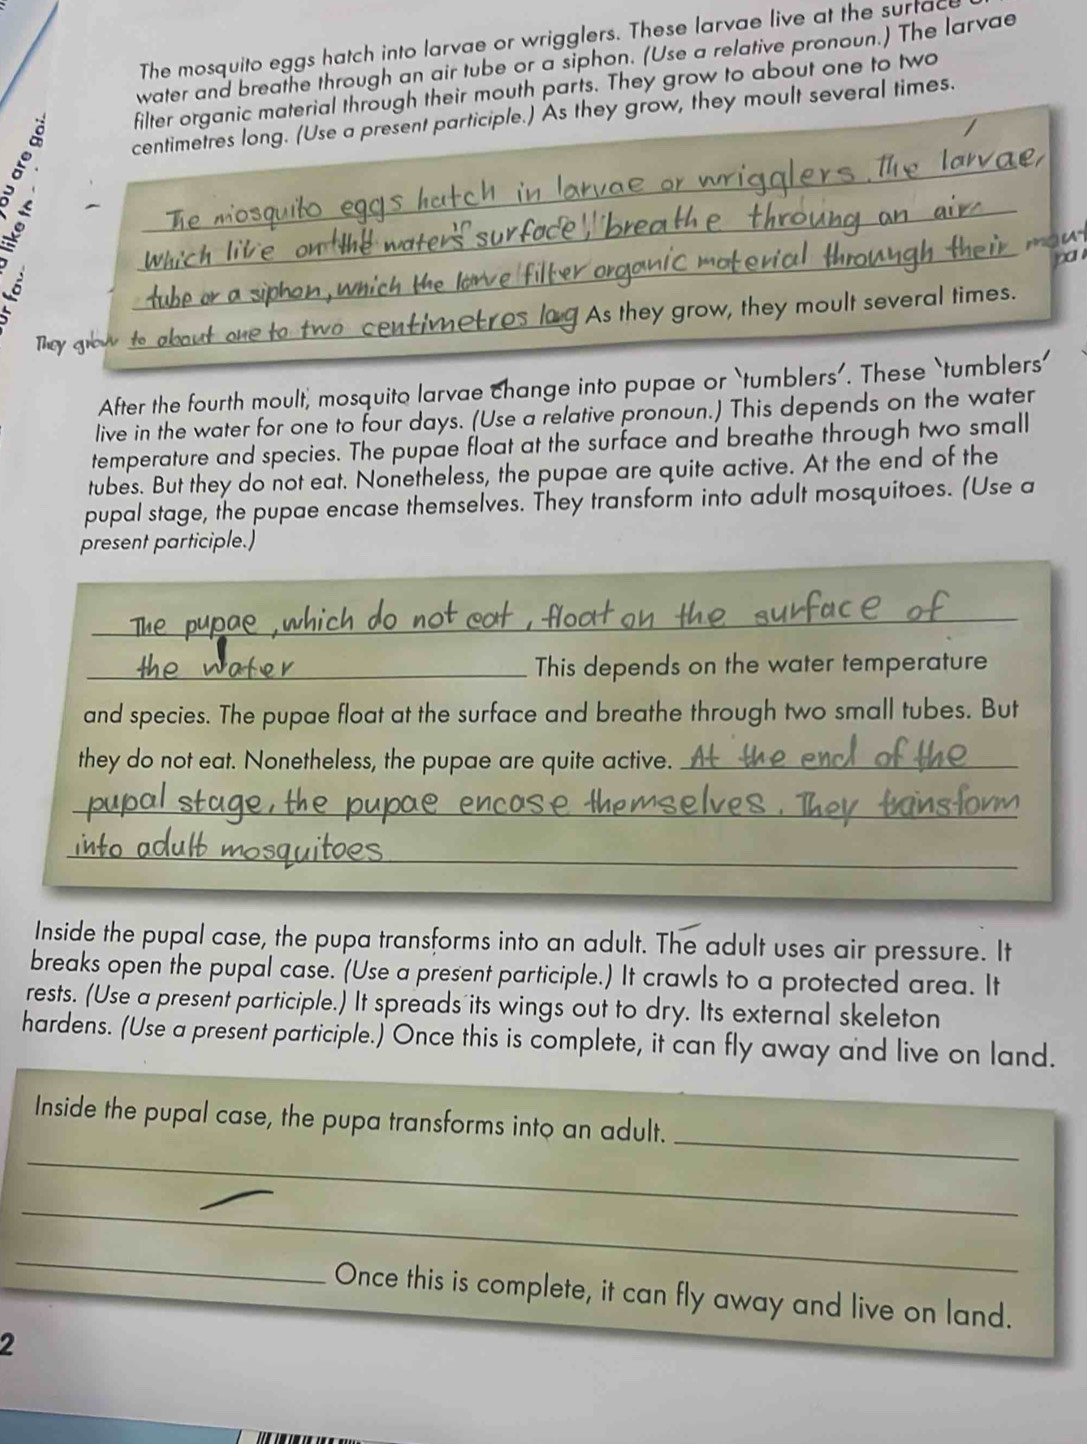 The mosquito eggs hatch into larvae or wrigglers. These larvae live at the surface
water and breathe through an air tube or a siphon. (Use a relative pronoun.) The larvae
filter organic material through their mouth parts. They grow to about one to two
centimetres long. (Use a present participle.) As they grow, they moult several times.
you are goi
like
The mosquito eggs hatch in larvae or wrigglers. The larvae,
which live on the water's surface, breathe throung an air
tube or a siphon, which the larve filter organic material throungh their mout
They grow to about one to two centimetres long As they grow, they moult several times.
After the fourth moult, mosquito larvae change into pupae or 'tumblers'. These 'tumblers'
live in the water for one to four days. (Use a relative pronoun.) This depends on the water
temperature and species. The pupae float at the surface and breathe through two small
tubes. But they do not eat. Nonetheless, the pupae are quite active. At the end of the
pupal stage, the pupae encase themselves. They transform into adult mosquitoes. (Use a
present participle.)
The pupae, which do not eat, float on the surface of
the water This depends on the water temperature
and species. The pupae float at the surface and breathe through two small tubes. But
they do not eat. Nonetheless, the pupae are quite active. At the end of the
pupal stage, the pupae encase themselves. They transform
into adult mosquitoes
Inside the pupal case, the pupa transforms into an adult. The adult uses air pressure. It
breaks open the pupal case. (Use a present participle.) It crawls to a protected area. It
rests. (Use a present participle.) It spreads its wings out to dry. Its external skeleton
hardens. (Use a present participle.) Once this is complete, it can fly away and live on land.
Inside the pupal case, the pupa transforms into an adult.
Once this is complete, it can fly away and live on land.
2